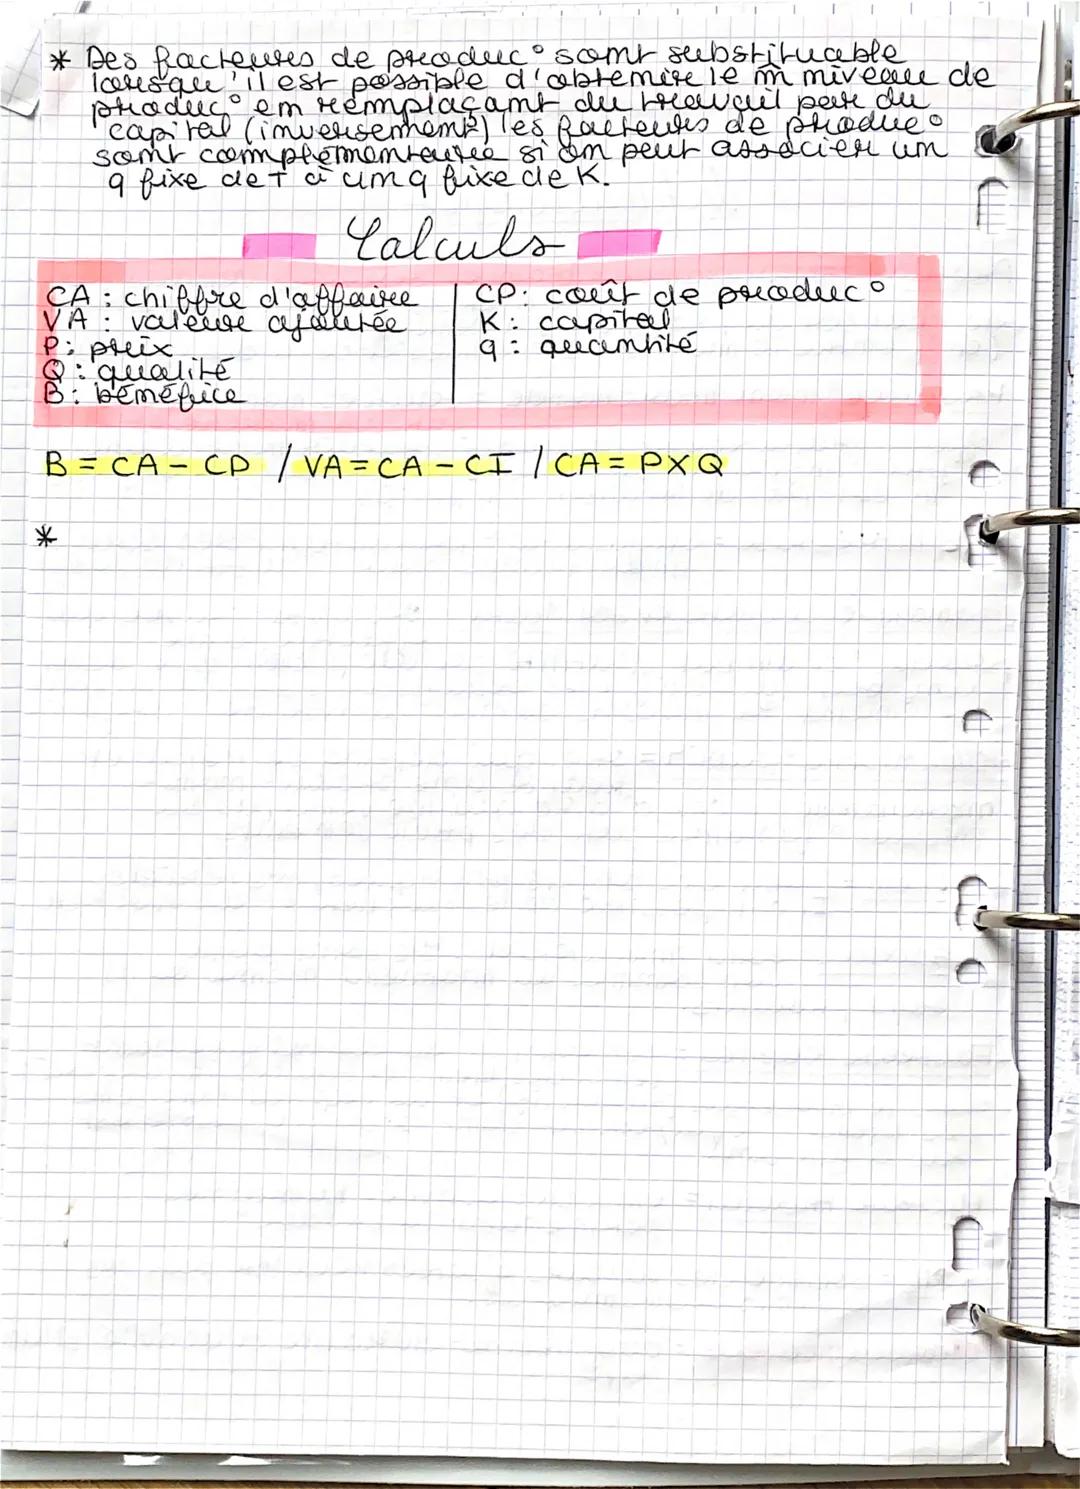 * Des facteures de produc° sont substituable
lorsqu'il est possible d'obtenire le m̂ niveau de
produc° en remplaçant du travail par du
capital (inversement) les facteurs de produc°
sont complémentaire si on peut associer un
q fixe de T à un q fixe de K.
Calculs
CA : chiffre d'affaire
VA : valeure ajoutée
P : prix
Q : qualité
B : bénéfice
CP : coût de produc°
K : capital
q : quantité
B = CA - CP / VA = CA - CI / CA = P X Q
*